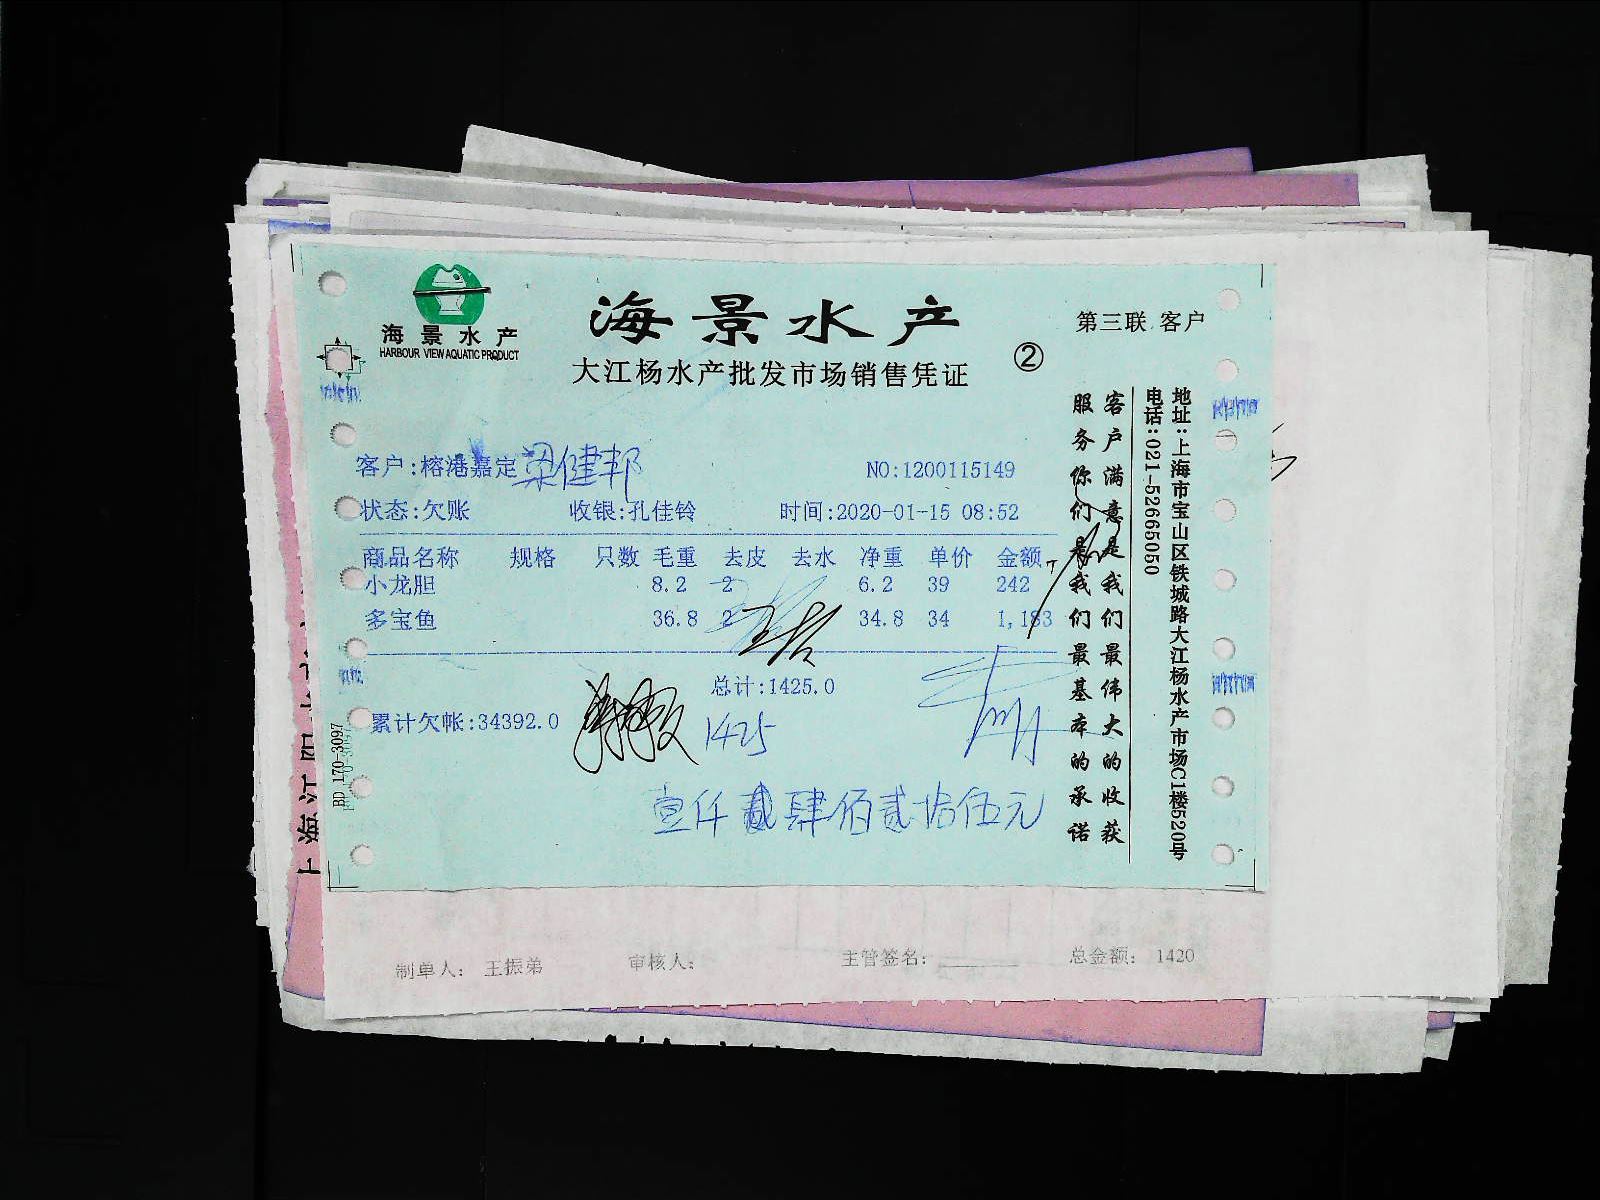 海景水产
HARBOUR VIEW AQUATIC PRODUCT
海景水产
大江杨水产批发市场销售凭证
②
第三联 客户
客户:榕港嘉定 梁健邦
NO:1200115149
状态:欠账 收银:孔佳铃 时间:2020-01-15 08:52
商品名称 规格 只数 毛重 去皮 去水 净重 单价 金额
小龙胆 8.2 2 6.2 39 242
多宝鱼 36.8 2 34.8 34 1,183
总计:1425.0
累计欠帐:34392.0
1425
壹仟贰肆佰贰拾伍元
客户满意是我们最伟大的收获
服务你们是我们最基本的承诺
地址:上海市宝山区铁城路大江杨水产市场C1楼520号
电话:021-52665050
BD 170-3097
制单人: 王振弟 审核人: 主管签名: 总金额: 1420